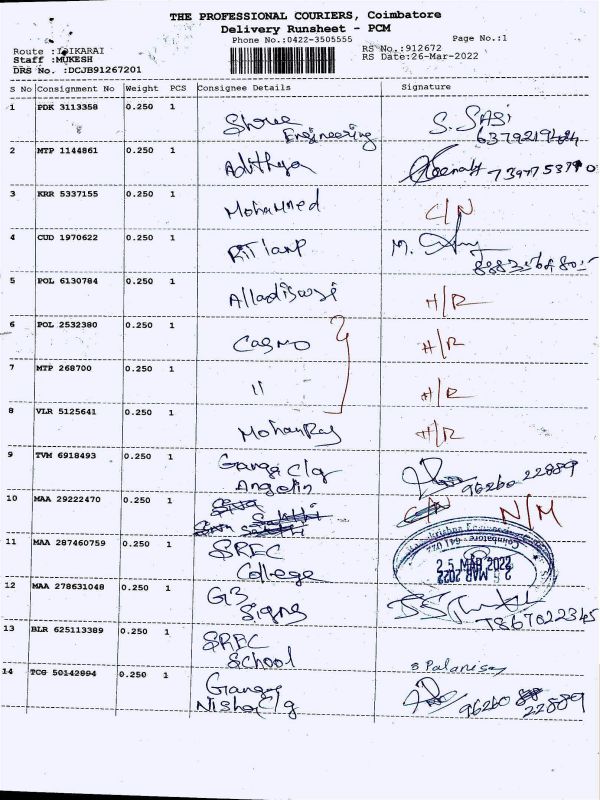 THE PROFESSIONAL COURIERS, Coimbatore
Delivery Runsheet - PCM
Phone No.:0422-3505555 Page No.:1
Route : RS No.:912672
Staff :MUKESH RS Date:26-Mar-2022
DRS No. :DCJB91267201
S No Consignment No Weight PCS Consignee Details Signature
1 PDK 3113358 0.250 1 Shree Engineering S. SASI
2 MTP 1144861 0.250 1 Adithya
3 KRR 5337155 0.250 1 Mohammed C/N
4 CUD 1970622 0.250 1 M.
5 POL 6130784 0.250 1 H/R
6 POL 2532380 0.250 1 Cosmo H/R
7 MTP 268700 0.250 1 11 H/R
8 VLR 5125641 0.250 1 Mohan Raj H/R
9 TVM 6918493 0.250 1 Ganga Clg 96260 22889
10 MAA 29222470 0.250 1 N/M
11 MAA 287460759 0.250 1 SREC College
25 MAR 2022
12 MAA 278631048 0.250 1 G3 Signs 7867022345
13 BLR 625113389 0.250 1 SREC School
14 TCG 50142894 0.250 1 Nisha Clg 96260 22889